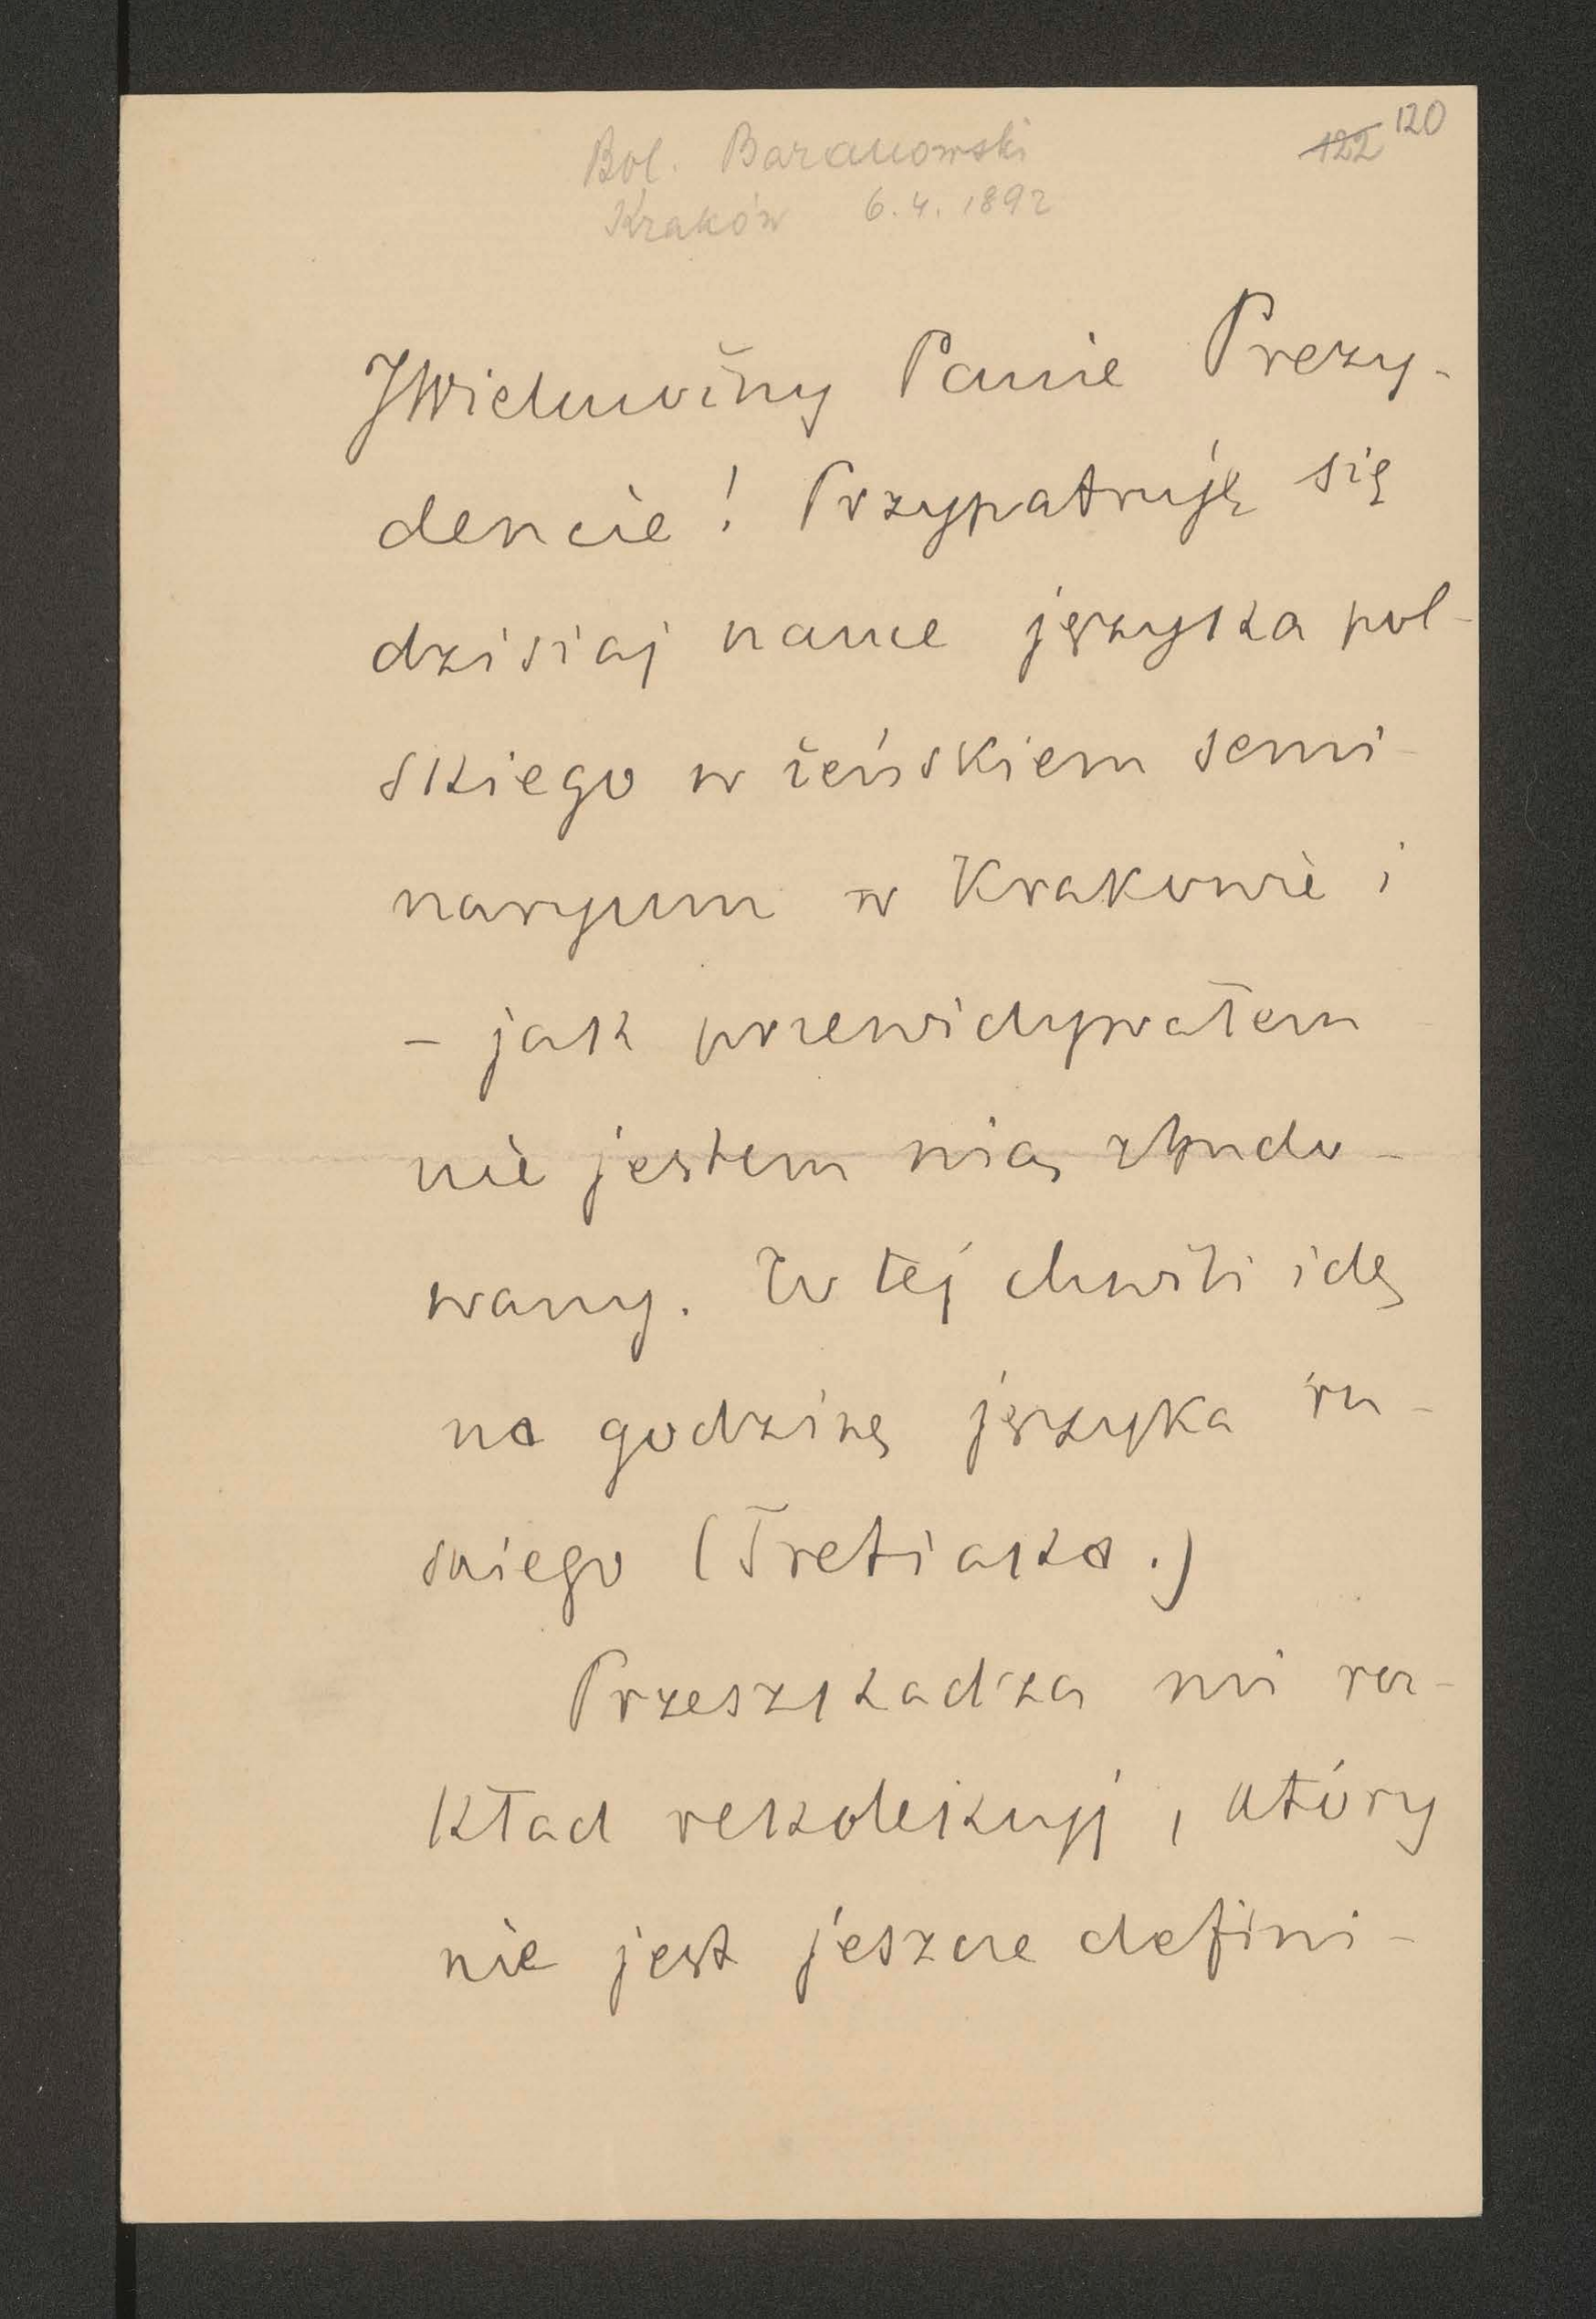 Bol. Baranowski
Kraków 6.4.1892
122 120
JWielmożny Panie Prezy-
dencie! Przypatruję się
dzisiaj nauce języka pol-
skiego w żeńskiem semi-
naryum w Krakowie i
- jak przewidywałem
nie jestem nią zbudo-
wany. W tej chwili idę
na godzinę języka ru-
skiego (Tretiaka.)
Przeszkadza mi roz-
kład rekolekcyj, który
nie jest jeszcze defini-